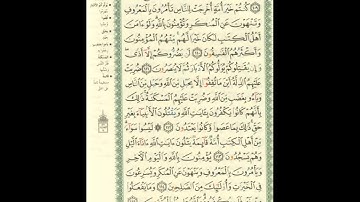 كُنتُمْ خَيْرَ أُمَّةٍ أُخْرِجَتْ لِلنَّاسِ تَأْمُرُونَ بِٱلْمَعْرُوفِ
وَتَنْهَوْنَ عَنِ ٱلْمُنكَرِ وَتُؤْمِنُونَ بِٱللَّهِ وَلَوْ ءَامَنَ
أَهْلُ ٱلْكِتَٰبِ لَكَانَ خَيْرًا لَّهُم مِّنْهُمُ ٱلْمُؤْمِنُونَ
وَأَكْثَرُهُمُ ٱلْفَٰسِقُونَ ١١٠ لَن يَضُرُّوكُمْ إِلَّآ أَذًى
وَإِن يُقَٰتِلُوكُمْ يُوَلُّوكُمُ ٱلْأَدْبَارَ ثُمَّ لَا يُنصَرُونَ ١١١ ضُرِبَتْ
عَلَيْهِمُ ٱلذِّلَّةُ أَيْنَ مَا ثُقِفُوٓا۟ إِلَّا بِحَبْلٍ مِّنَ ٱللَّهِ وَحَبْلٍ مِّنَ ٱلنَّاسِ
وَبَآءُو بِغَضَبٍ مِّنَ ٱللَّهِ وَضُرِبَتْ عَلَيْهِمُ ٱلْمَسْكَنَةُ ذَٰلِكَ
بِأَنَّهُمْ كَانُوا۟ يَكْفُرُونَ بِـَٔايَٰتِ ٱللَّهِ وَيَقْتُلُونَ ٱلْأَنۢبِيَآءَ بِغَيْرِ
حَقٍّ ذَٰلِكَ بِمَا عَصَوا۟ وَّكَانُوا۟ يَعْتَدُونَ ١١٢ لَيْسُوا۟ سَوَآءً
مِّنْ أَهْلِ ٱلْكِتَٰبِ أُمَّةٌ قَآئِمَةٌ يَتْلُونَ ءَايَٰتِ ٱللَّهِ ءَانَآءَ ٱلَّيْلِ
وَهُمْ يَسْجُدُونَ ١١٣ يُؤْمِنُونَ بِٱللَّهِ وَٱلْيَوْمِ ٱلْءَاخِرِ
وَيَأْمُرُونَ بِٱلْمَعْرُوفِ وَيَنْهَوْنَ عَنِ ٱلْمُنكَرِ وَيُسَٰرِعُونَ
فِى ٱلْخَيْرَٰتِ وَأُو۟لَٰٓئِكَ مِنَ ٱلصَّٰلِحِينَ ١١٤ وَمَا يَفْعَلُوا۟